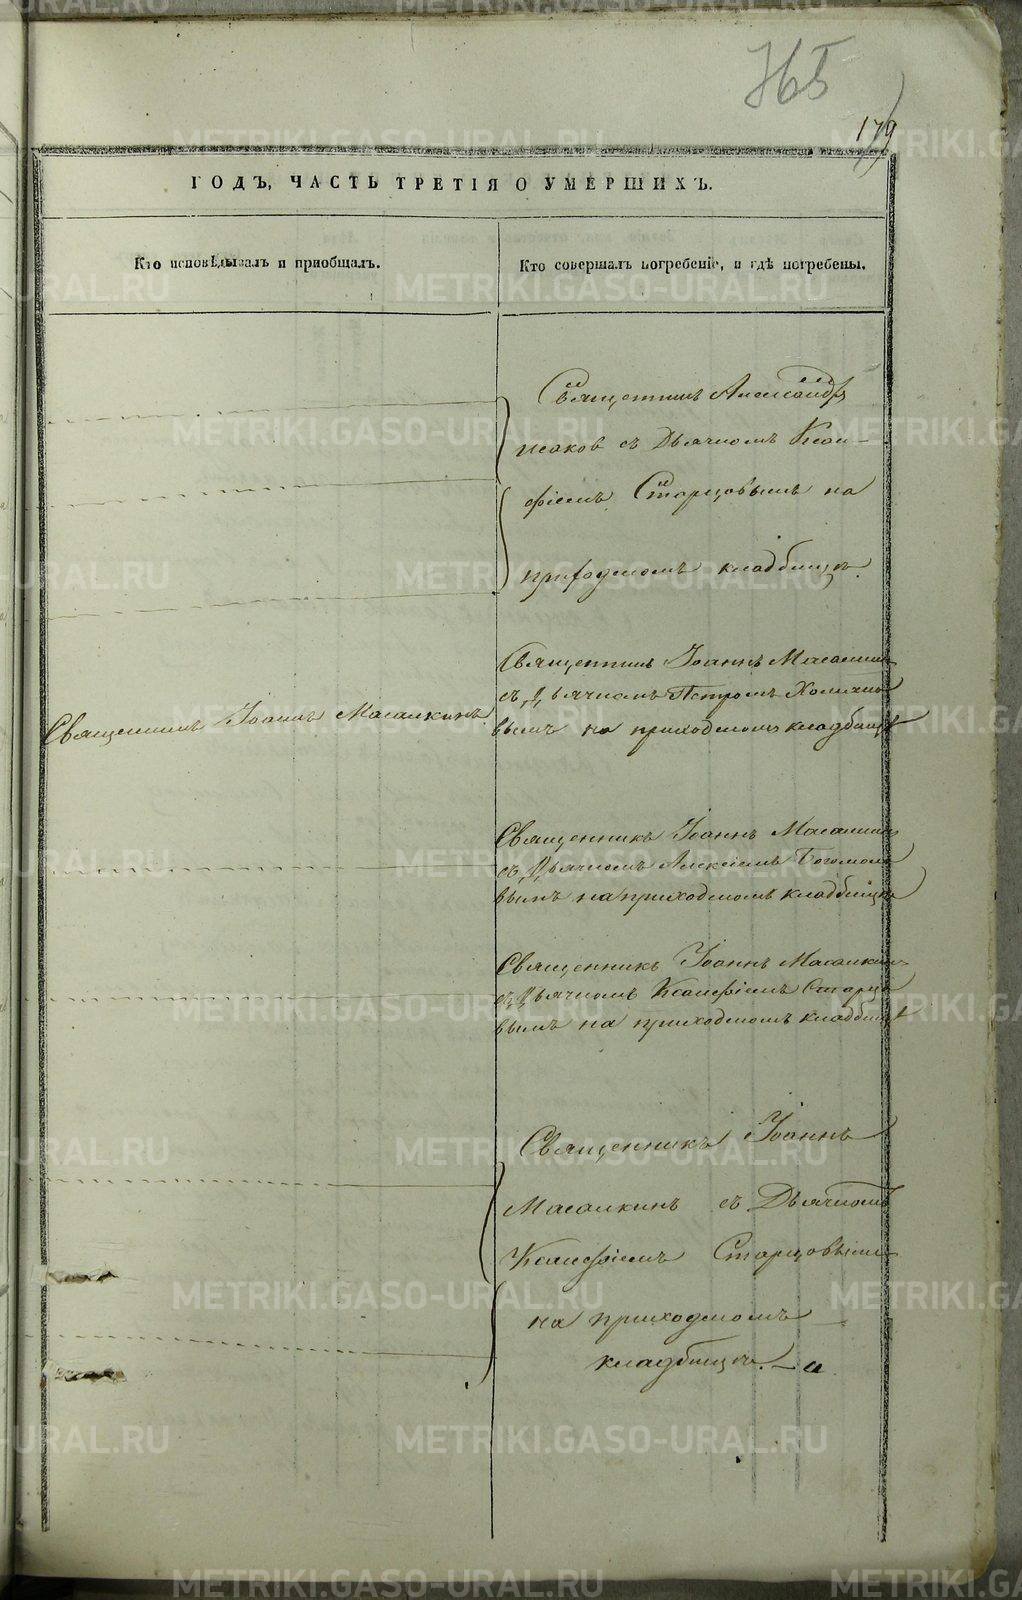 179
ГОДЪ, ЧАСТЬ ТРЕТІЯ О УМЕРШИХЪ.
Кто исповѣдывалъ и пріобщалъ.
Кто совершалъ погребеніе, и гдѣ погребены.
Священникъ Александръ
Исаков съ Дьячкомъ Ксен-
фіемъ Старцовымъ на
приходскомъ кладбищѣ.
Священникъ Іоаннъ Масалкинъ
Священникъ Іоаннъ Масалкинъ
съ Дьячкомъ Петромъ
вымъ на приходскомъ кладбищѣ
Священникъ Іоаннъ Масалкинъ
съ Дьячкомъ Алексіемъ Богомоло
вымъ на приходскомъ кладбищѣ
Священникъ Іоаннъ Масалкинъ
съ Дьячкомъ Ксенфіемъ Старцо
вымъ на приходскомъ кладбищѣ
Священникъ Іоаннъ
Масалкинъ съ Дьячкомъ
Ксенфіемъ Старцовымъ
на приходскомъ
кладбищѣ.
METRIKI.GASO-URAL.RU